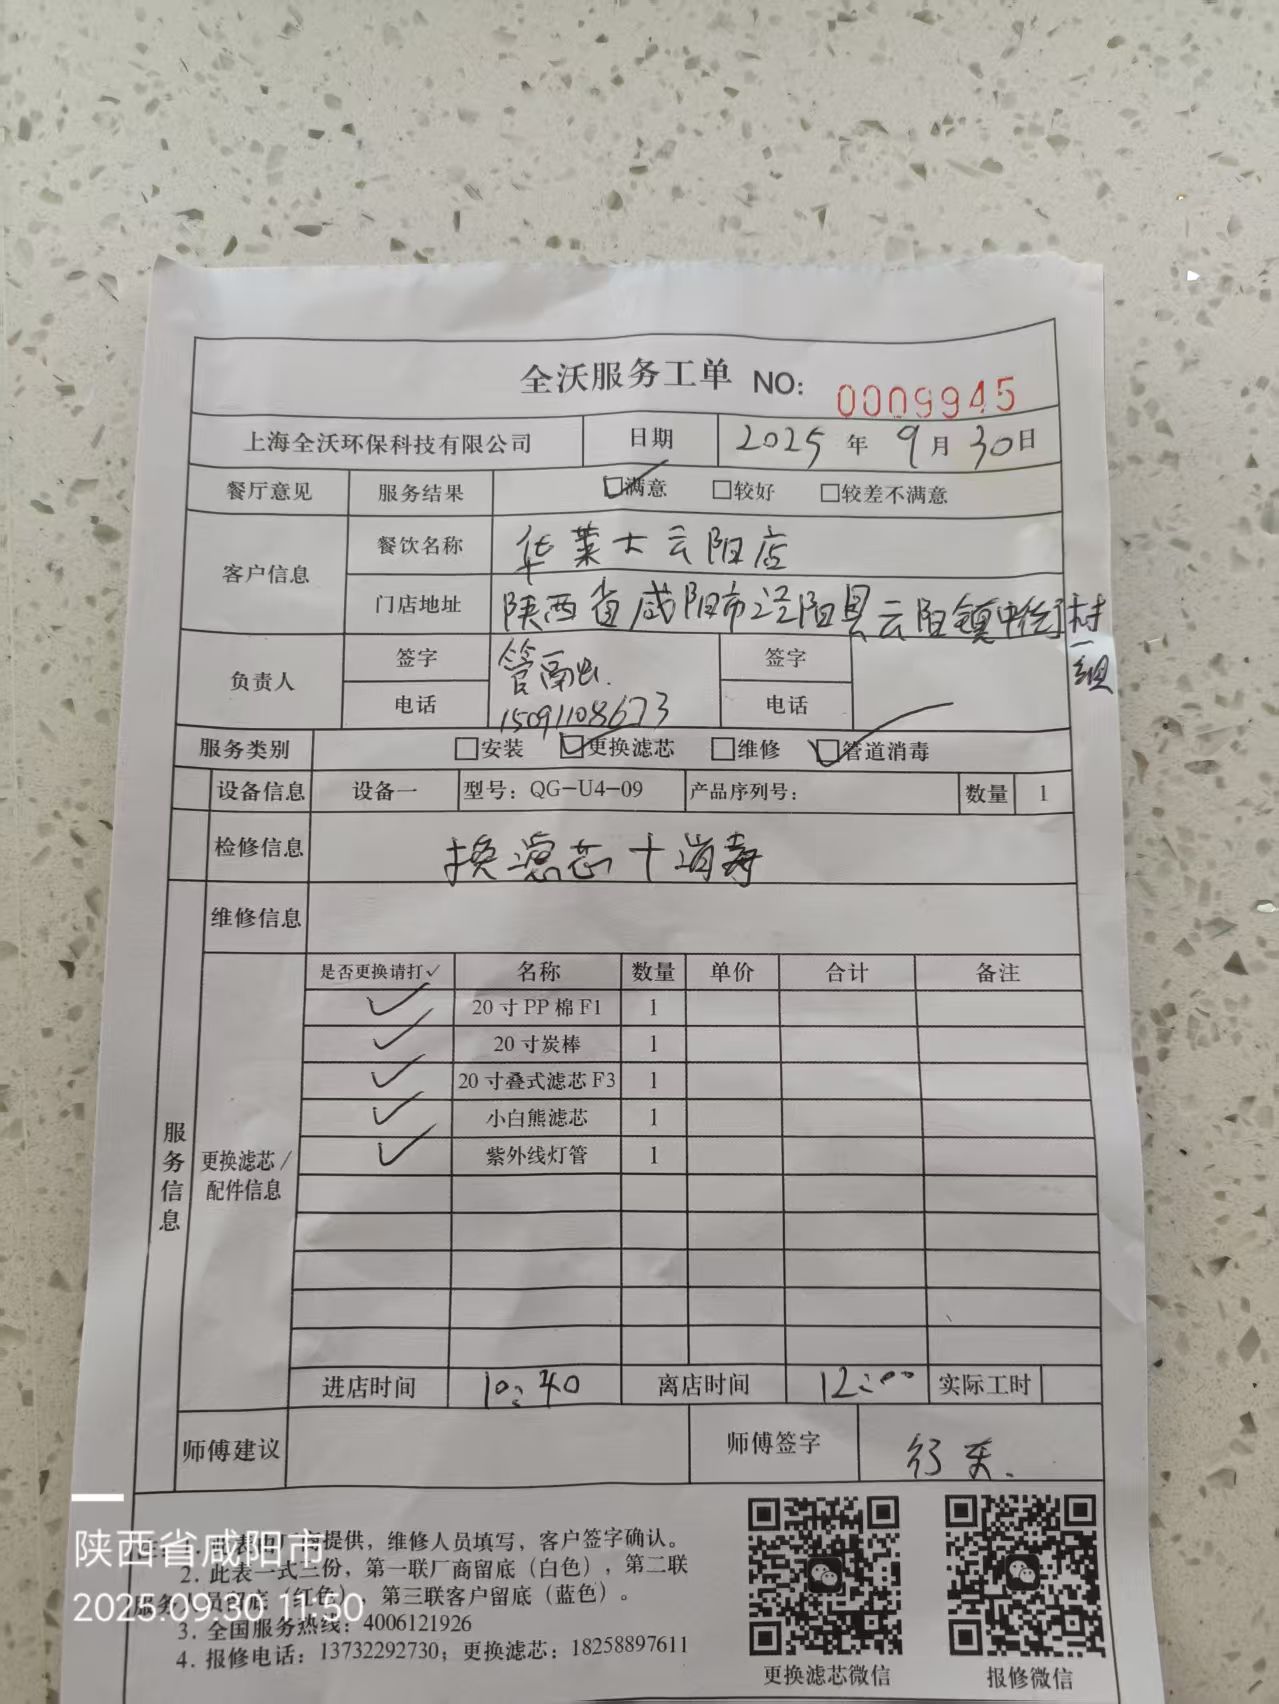 全沃服务工单 NO: 0009945
上海全沃环保科技有限公司 日期 2025年9月30日
餐厅意见 服务结果 ☑满意 □较好 □较差不满意
客户信息 餐饮名称 华莱士云阳店
门店地址 陕西省咸阳市泾阳县云阳镇中街村一组
负责人 签字 管 签字
电话 15091108673 电话
服务类别 □安装 ☑更换滤芯 □维修 ☑管道消毒
设备信息 设备一 型号：QG-U4-09 产品序列号： 数量 1
检修信息 换滤芯+消毒
维修信息
服务信息
更换滤芯/配件信息
是否更换请打✓ 名称 数量 单价 合计 备注
✓ 20寸PP棉F1 1
✓ 20寸炭棒 1
✓ 20寸叠式滤芯F3 1
✓ 小白熊滤芯 1
✓ 紫外线灯管 1
进店时间 10:40 离店时间 12:00 实际工时
师傅建议 师傅签字
1. 此表由厂商提供，维修人员填写，客户签字确认。
2. 此表一式三份，第一联厂商留底（白色），第二联
服务人员留底（红色），第三联客户留底（蓝色）。
3. 全国服务热线：4006121926
4. 报修电话：13732292730；更换滤芯：18258897611
更换滤芯微信 报修微信
陕西省咸阳市
2025.09.30 11:50